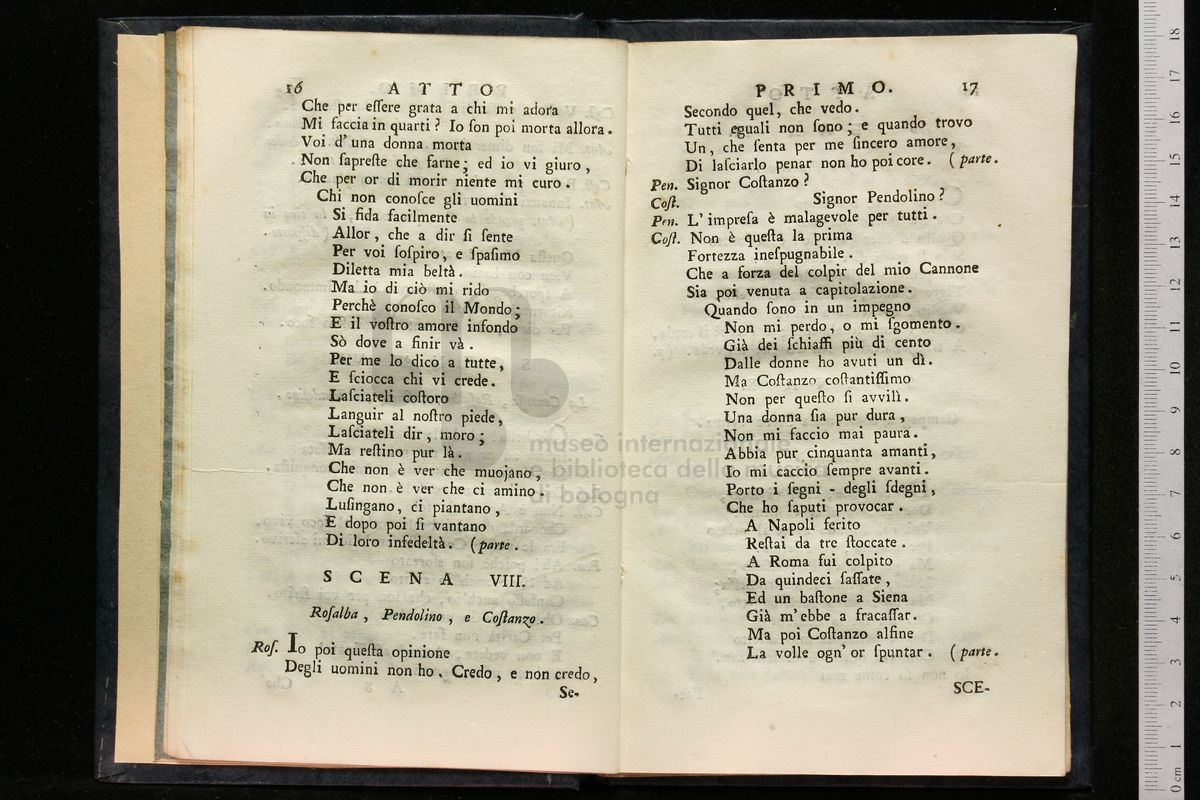 16 ATTO
Che per eſſere grata a chi mi adora
Mi faccia in quarti? Io ſon poi morta allora.
Voi d'una donna morta
Non ſapreſte che farne; ed io vi giuro,
Che per or di morir niente mi curo.
Chi non conoſce gli uomini
Si fida facilmente
Allor, che a dir ſi ſente
Per voi ſoſpiro, e ſpaſimo
Diletta mia beltà.
Ma io di ciò mi rido
Perchè conoſco il Mondo;
E il voſtro amore infondo
Sò dove a finir và.
Per me lo dico a tutte,
E ſciocca chi vi crede.
Laſciateli coſtoro
Languir al noſtro piede,
Laſciateli dir, moro;
Ma reſtino pur là.
Che non è ver che muojano,
Che non è ver che ci amino.
Luſingano, ci piantano,
E dopo poi ſi vantano
Di loro infedeltà. (parte.
SCENA VIII.
Roſalba, Pendolino, e Coſtanzo.
Roſ. Io poi queſta opinione
Degli uomini non ho. Credo, e non credo,
Se-
PRIMO. 17
Secondo quel, che vedo.
Tutti eguali non ſono; e quando trovo
Un, che ſenta per me ſincero amore,
Di laſciarlo penar non ho poi core. (parte.
Pen. Signor Coſtanzo?
Coſt. Signor Pendolino?
Pen. L'impreſa è malagevole per tutti.
Coſt. Non è queſta la prima
Fortezza ineſpugnabile.
Che a forza del colpir del mio Cannone
Sia poi venuta a capitolazione.
Quando ſono in un impegno
Non mi perdo, o mi ſgomento.
Già dei ſchiaffi più di cento
Dalle donne ho avuti un dì.
Ma Coſtanzo coſtantiſſimo
Non per queſto ſi avvilì.
Una donna ſia pur dura,
Non mi faccio mai paura.
Abbia pur cinquanta amanti,
Io mi caccio ſempre avanti.
Porto i ſegni - degli ſdegni,
Che ho ſaputi provocar.
A Napoli ferito
Reſtai da tre ſtoccate.
A Roma fui colpito
Da quindeci ſaſſate,
Ed un baſtone a Siena
Già m'ebbe a fracaſſar.
Ma poi Coſtanzo alfine
La volle ogn'or ſpuntar. (parte.
SCE-
museo internazionale
e biblioteca della musica
di bologna
0 cm 1 2 3 4 5 6 7 8 9 10 11 12 13 14 15 16 17 18